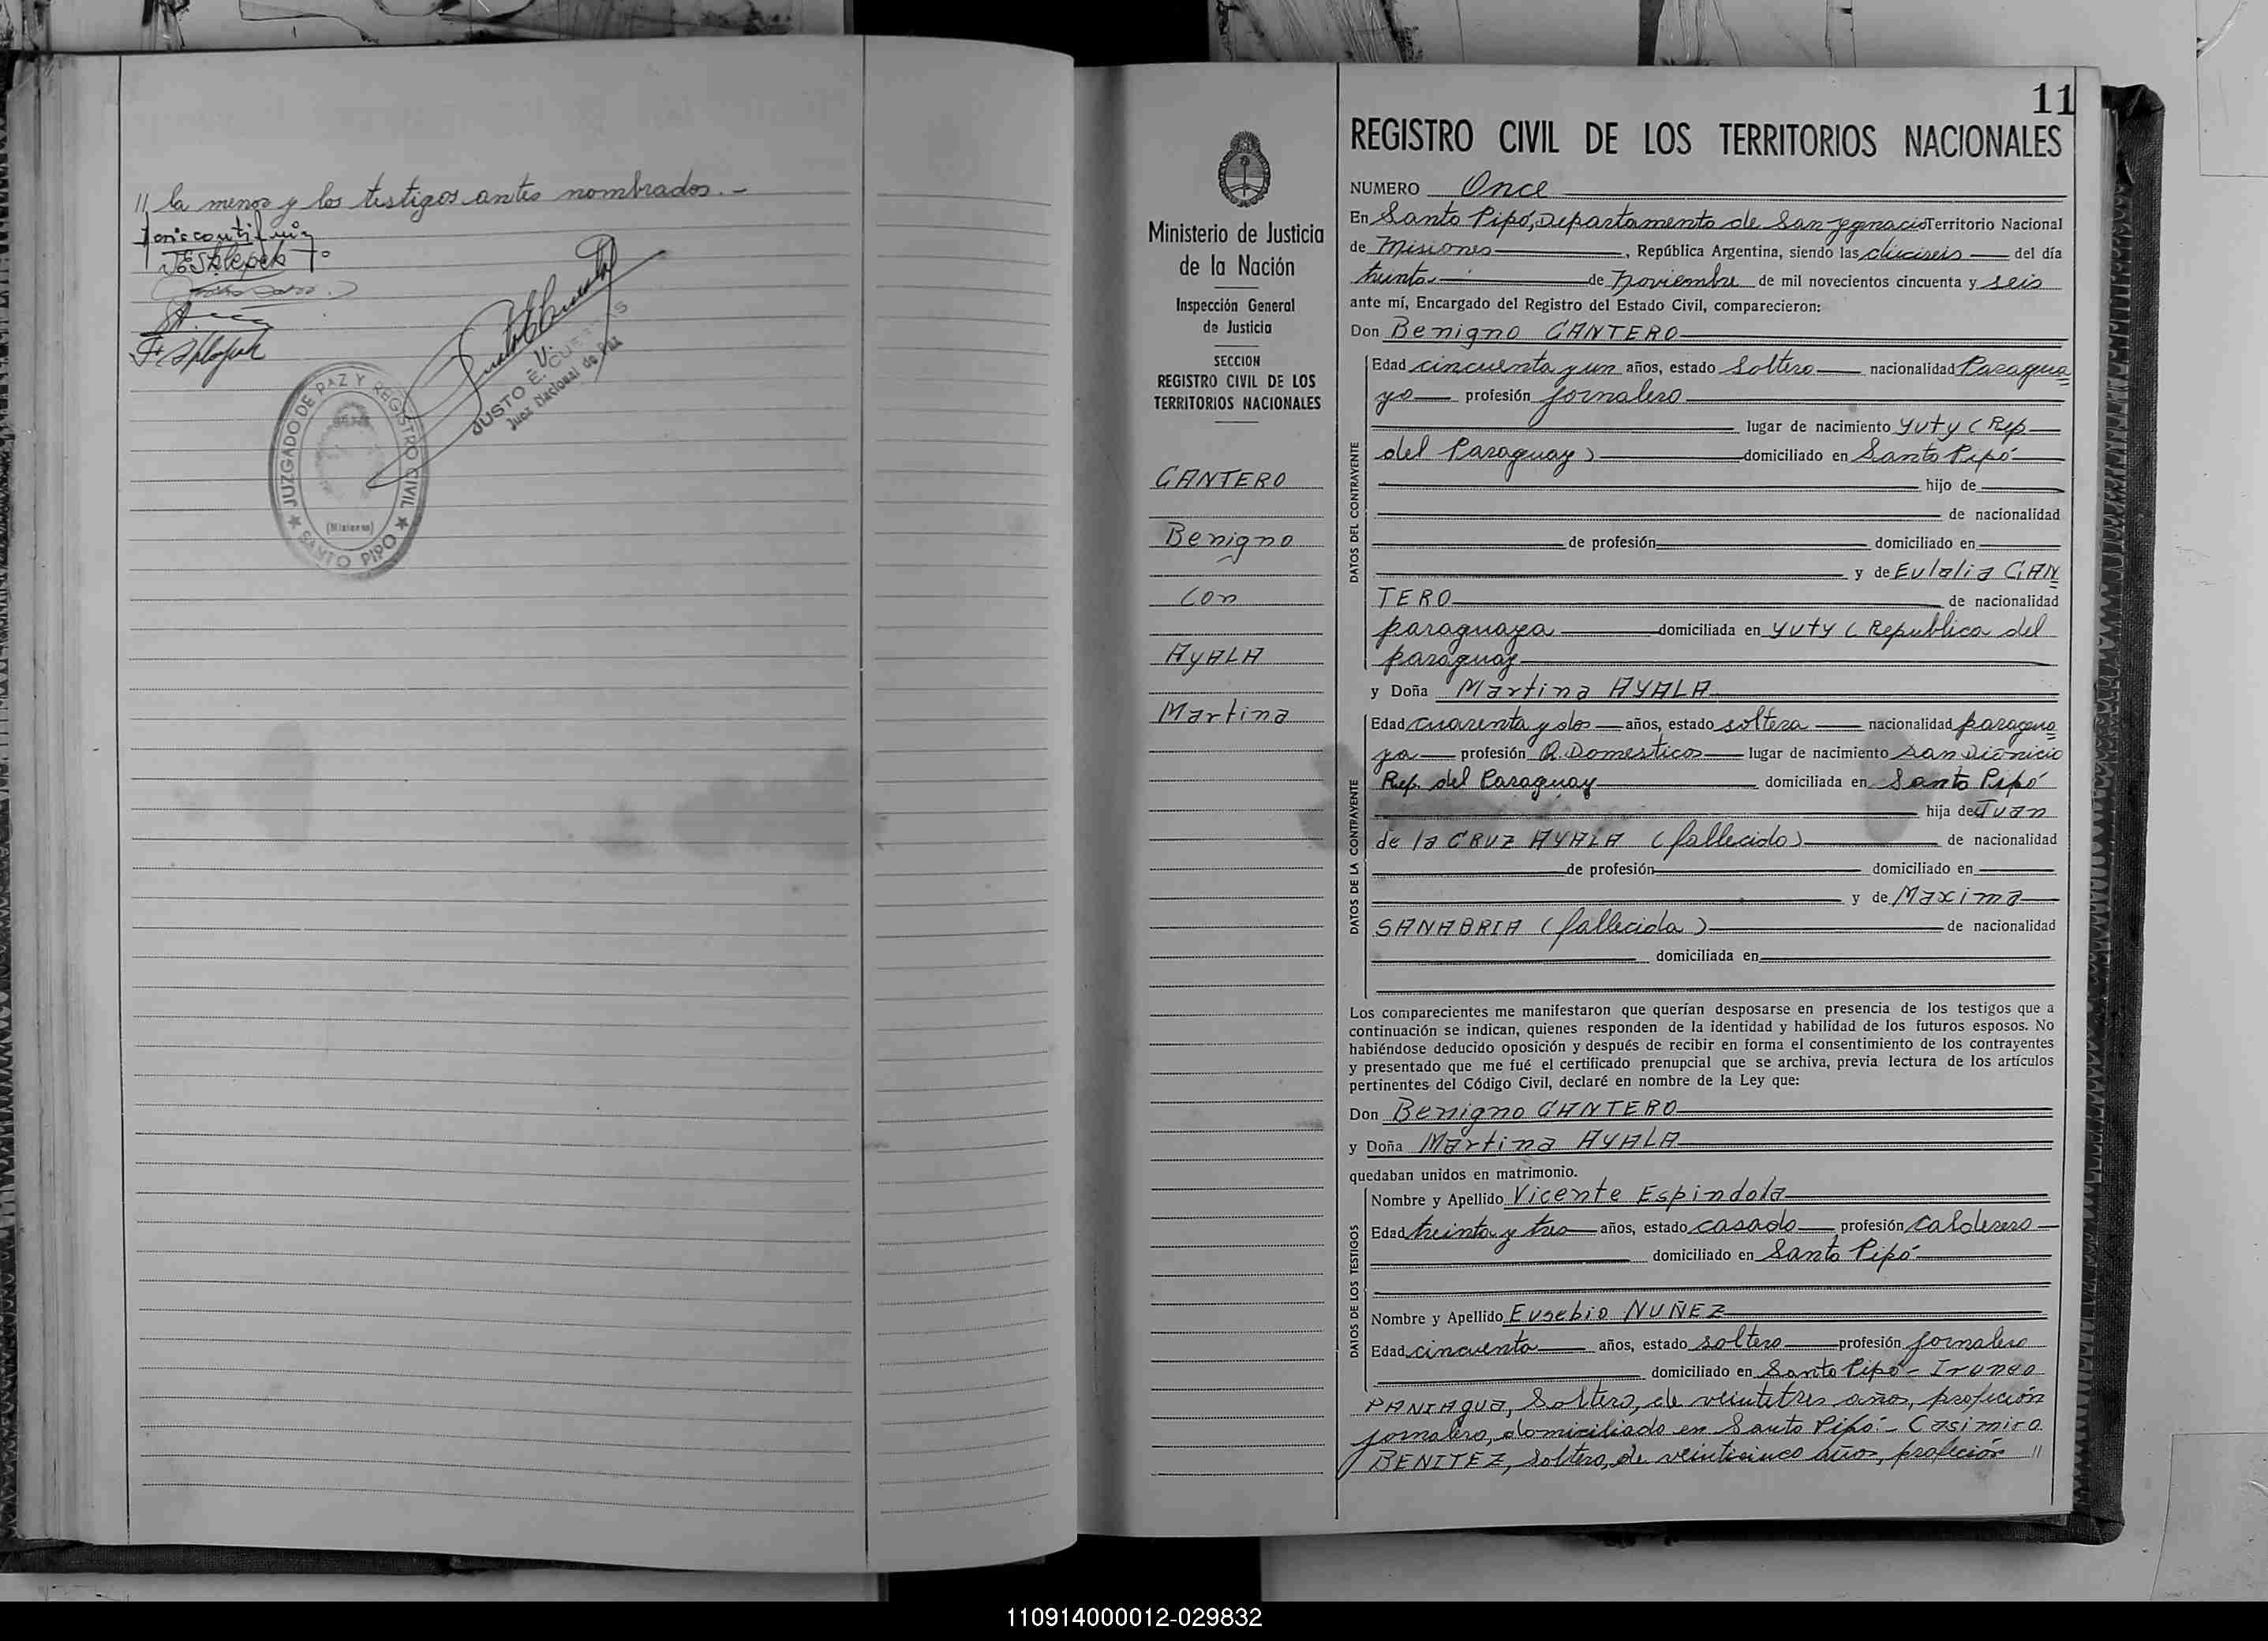 // la menor y los testigos antes nombrados.-
JUSTO E. V. CUEVAS
Juez Nacional de Paz
JUZGADO DE PAZ Y REGISTRO CIVIL
(Misiones)
SANTO PIPO
11
Ministerio de Justicia
de la Nación
Inspección General
de Justicia
SECCION
REGISTRO CIVIL DE LOS
TERRITORIOS NACIONALES
CANTERO
Benigno
Con
AYALA
Martina
REGISTRO CIVIL DE LOS TERRITORIOS NACIONALES
NUMERO Once
En Santo Pipó, Departamento de San Ygnacio Territorio Nacional
de Misiones, República Argentina, siendo las dieciseis del día
treinta de Noviembre de mil novecientos cincuenta y seis
ante mí, Encargado del Registro del Estado Civil, comparecieron:
Don Benigno CANTERO
DATOS DEL CONTRAYENTE
Edad cincuenta y un años, estado Soltero nacionalidad Paragua
yo profesión Jornalero
lugar de nacimiento Yuty (Rep
del Paraguay) domiciliado en Santo Pipó
hijo de
de nacionalidad
de profesión domiciliado en
y de Eulalia CAN
TERO de nacionalidad
paraguaya domiciliada en Yuty (Republica del
paraguay
y Doña Martina AYALA
DATOS DE LA CONTRAYENTE
Edad cuarenta y dos años, estado soltera nacionalidad paragua
ya profesión Q. Domesticos lugar de nacimiento San Dionicio
Rep. del Paraguay domiciliada en Santo Pipó
hija de Juan
de la CRUZ AYALA (fallecido) de nacionalidad
de profesión domiciliado en
y de Maxima
SANABRIA (fallecida) de nacionalidad
domiciliada en
Los comparecientes me manifestaron que querían desposarse en presencia de los testigos que a
continuación se indican, quienes responden de la identidad y habilidad de los futuros esposos. No
habiéndose deducido oposición y después de recibir en forma el consentimiento de los contrayentes
y presentado que me fué el certificado prenupcial que se archiva, previa lectura de los artículos
pertinentes del Código Civil, declaré en nombre de la Ley que:
Don Benigno CANTERO
y Doña Martina AYALA
quedaban unidos en matrimonio.
DATOS DE LOS TESTIGOS
Nombre y Apellido Vicente Espindola
Edad treinta y tres años, estado casado profesión Calderero
domiciliado en Santo Pipó
Nombre y Apellido Eusebio NUÑEZ
Edad cincuenta años, estado soltero profesión Jornalero
domiciliado en Santo Pipó-
PANIAGUA, Soltero, de veintetres años, profeción
jornalero, domiciliado en Santo Pipó.- Casimiro
BENITEZ, Soltero, de veinticinco años, profeción //
110914000012-029832